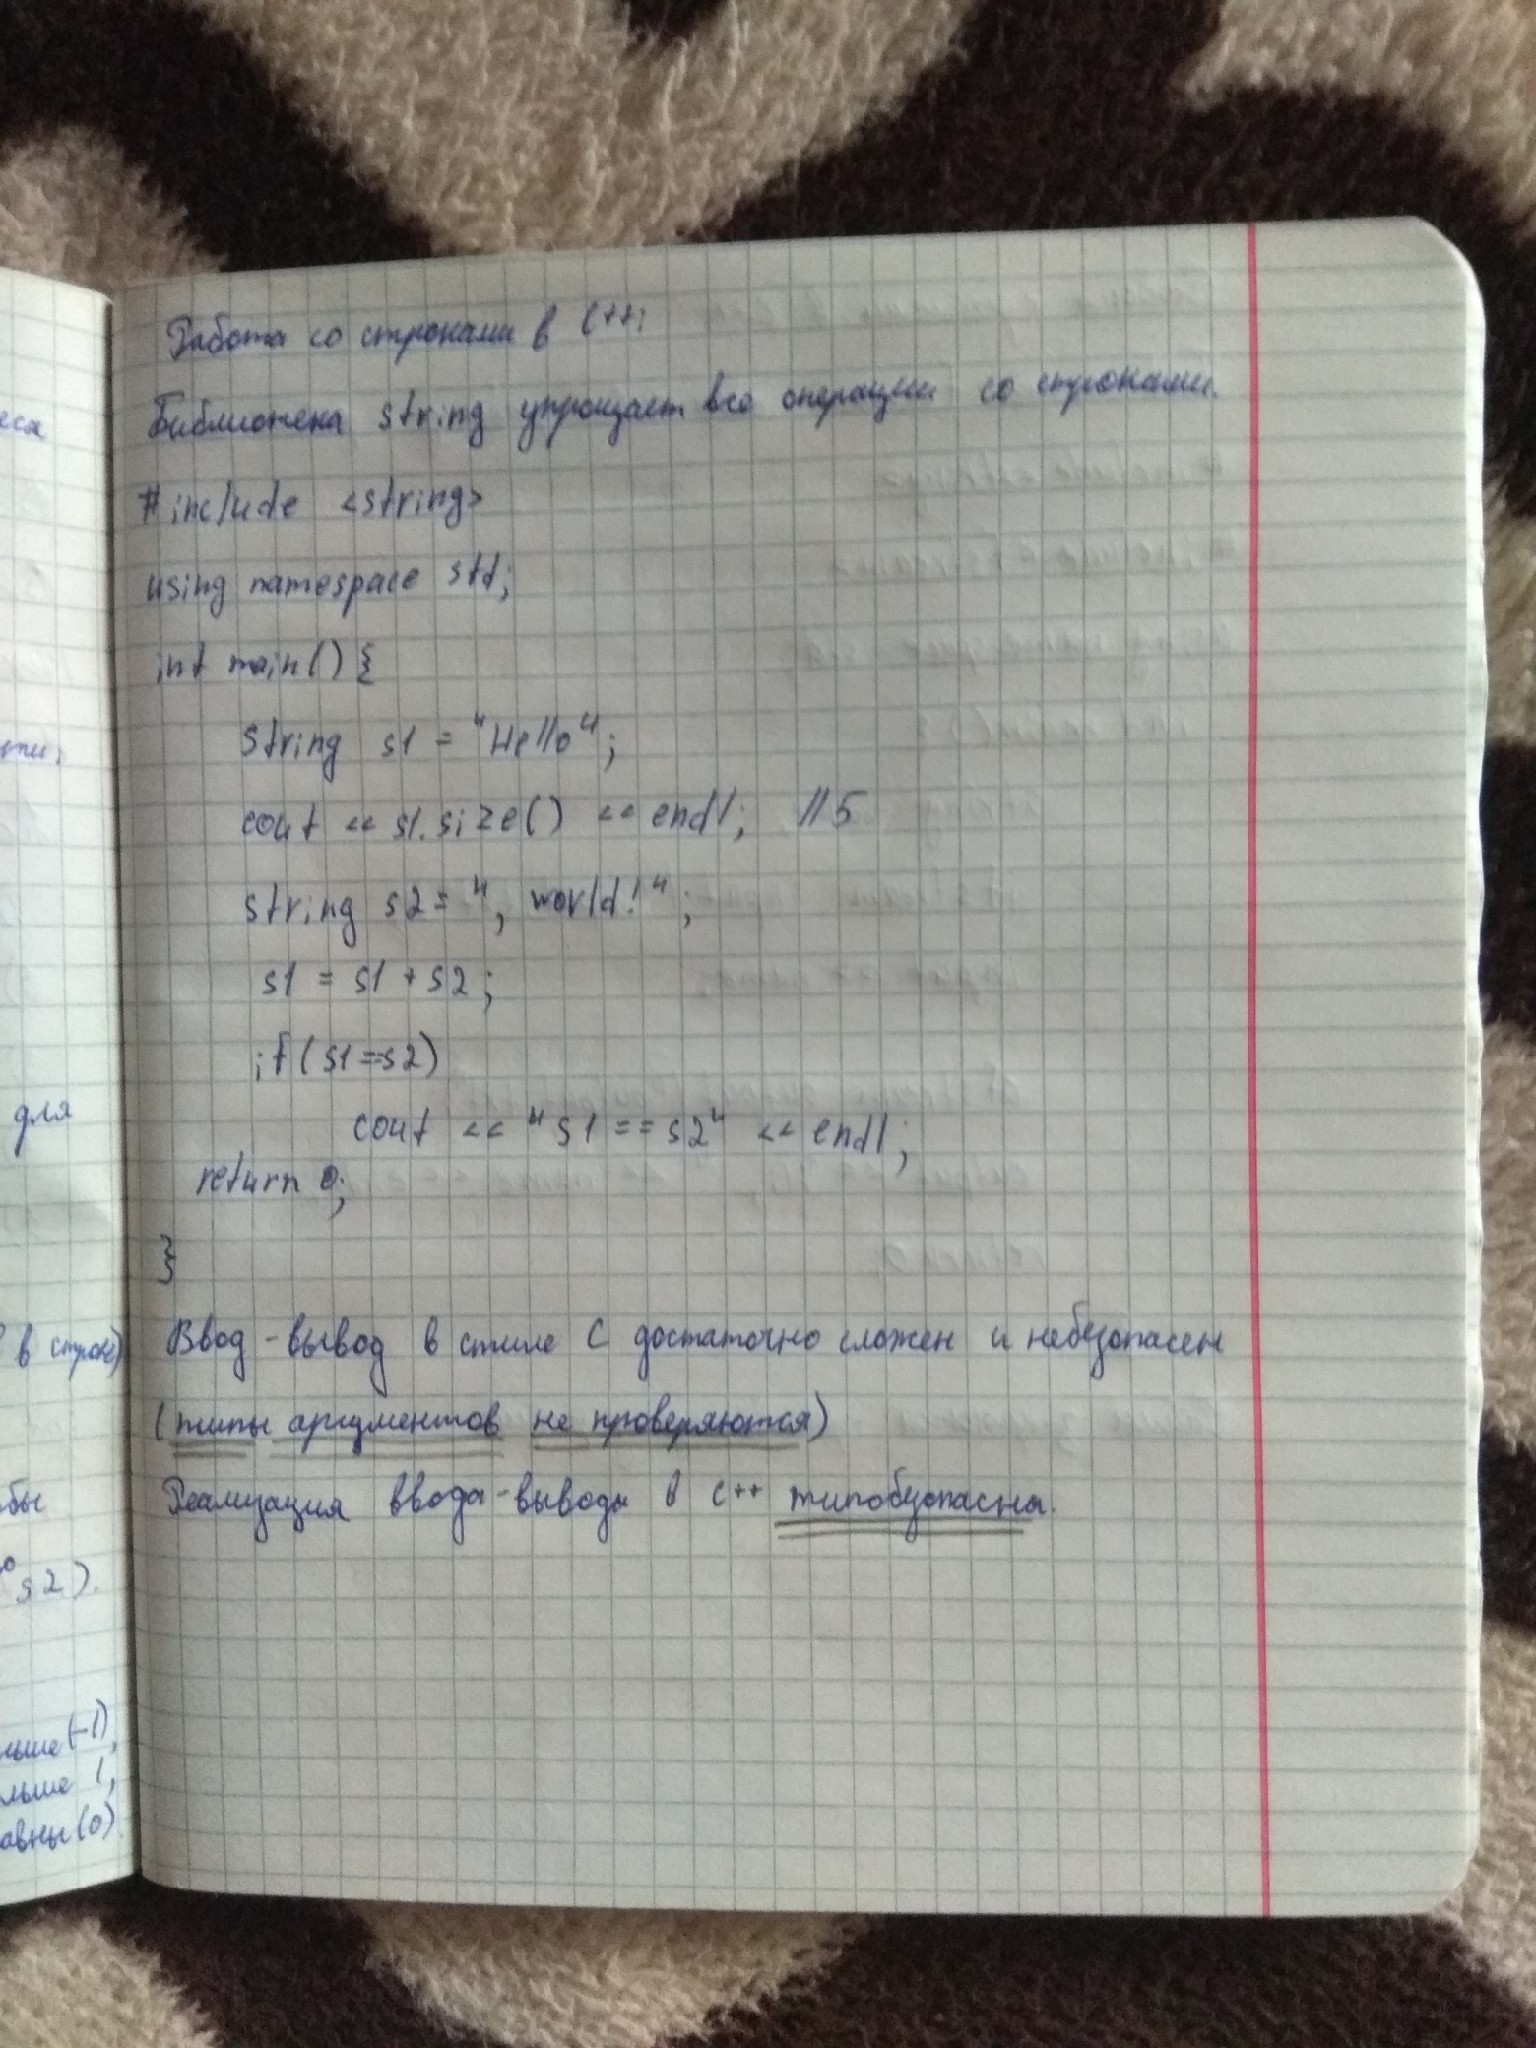 Работа со строками в C++:
Библиотека string упрощает все операции со строками.
#include <string>
using namespace std;
int main() {
string s1 = "Hello";
cout << s1.size() << endl; //5
string s2 = ", world!";
s1 = s1 + s2;
if(s1==s2)
cout << "s1 == s2" << endl;
return 0;
}
Ввод-вывод в стиле C достаточно сложен и небезопасен
(типы аргументов не проверяются)
Реализация ввода-вывода в C++ типобезопасна.
для
в строке)
s2).
(-1),
1,
(0).